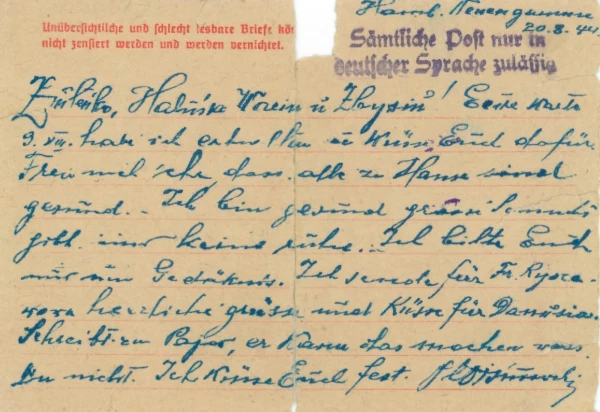 Hamb. Neuengamme
20.8.44
Unübersichtliche und schlecht lesbare Briefe kön
nicht zensiert werden und werden vernichtet.
Sämtliche Post nur in
deutscher Sprache zulässig
Halinka ! Eure
9. VII. habe ich erhalten Euch dafür.
mich sehr, dass alle zu Hause sind
gesund. - Ich bin gesund
mir keine ruhe. - Ich bitte Euch
nur um Gedäknis. Ich sende für Fr.
herzliche grüsse und Küsse für Danusia.
Schreibt zu er kann das machen was
Du nicht. Ich Küsse Euch fest.